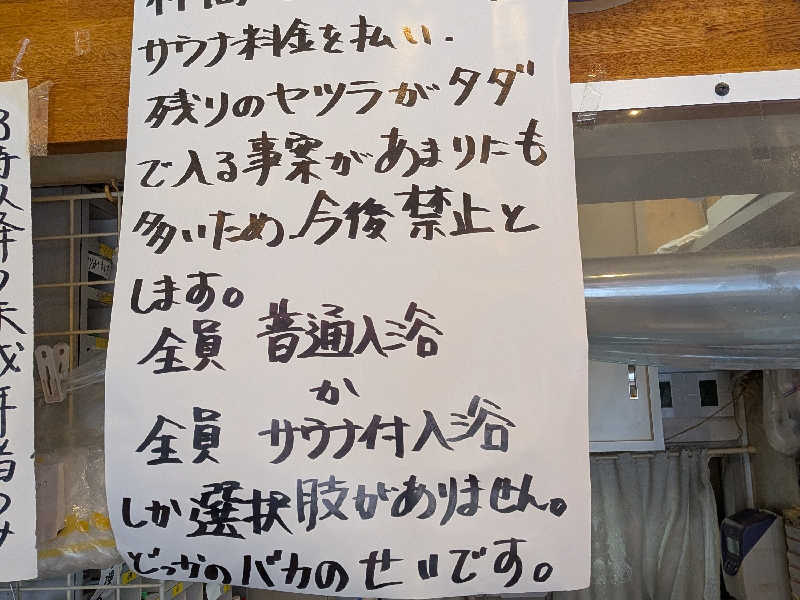 サウナ料金を払い、
残りのヤツラがタダ
で入る事案があまりにも
多いため今後禁止と
します。
全員 普通入浴
か
全員 サウナ付入浴
しか選択肢がありません。
どっかのバカのせいです。
時以降の未成年者のみ